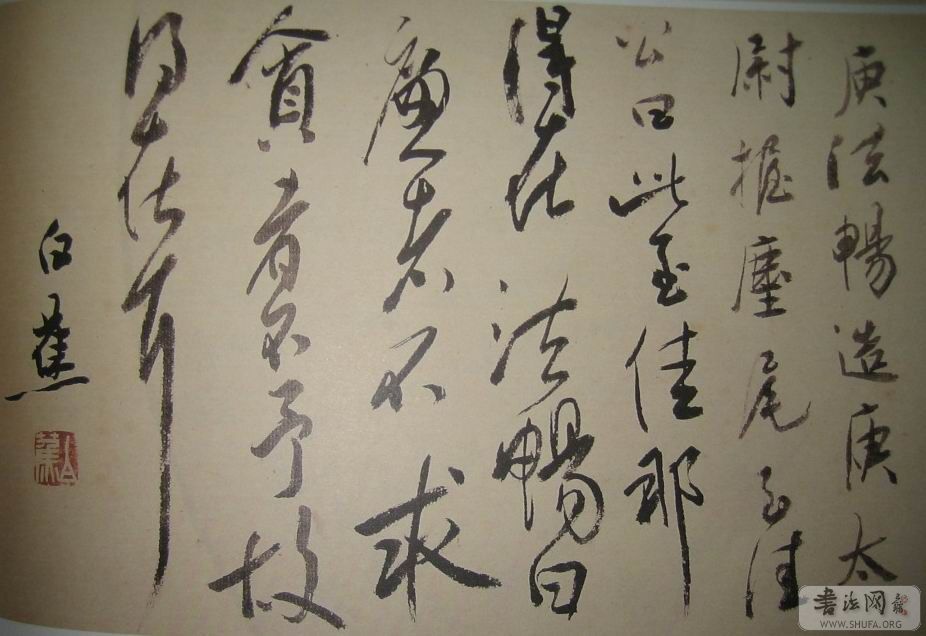 庾法暢造庾太
尉握麈尾至佳
公曰此至佳那
得在法暢曰
廉者不求
貪者不予故
得在耳
白蕉
白蕉
書法网
WWW.SHUFA.ORG